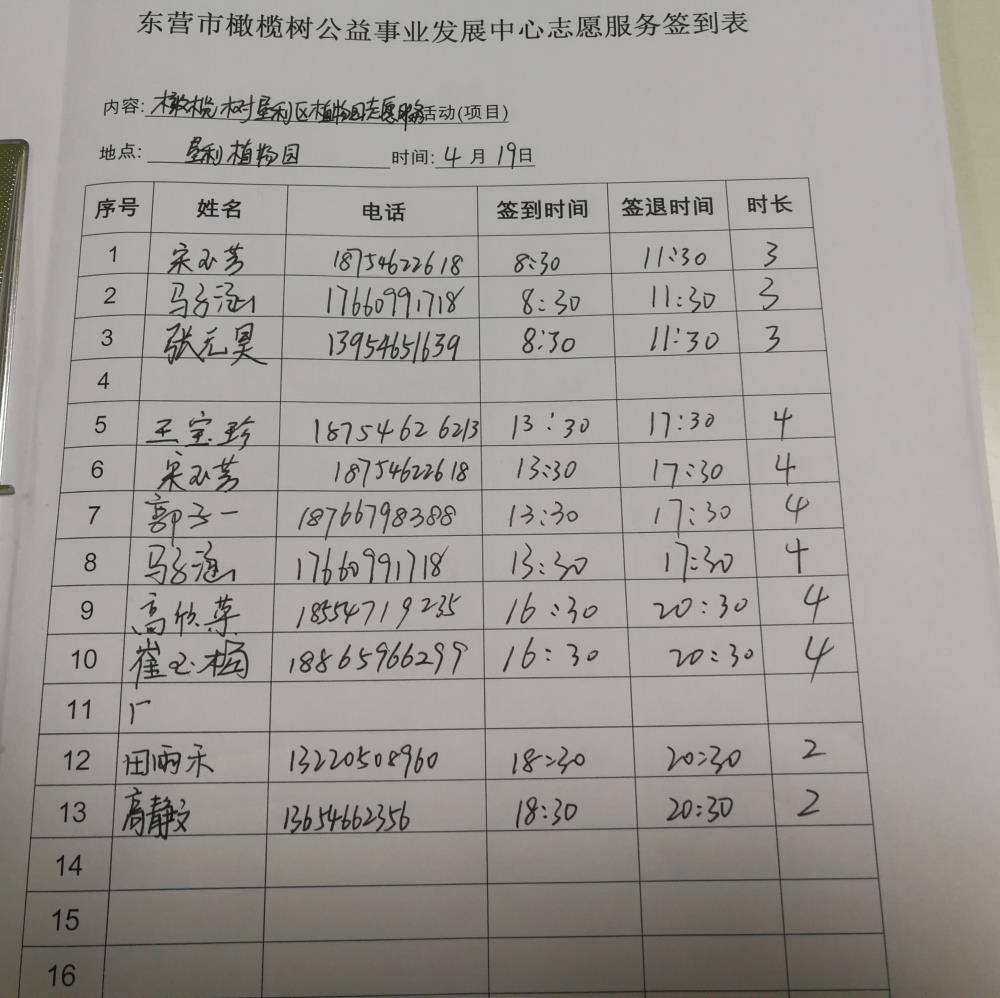 东营市橄榄树公益事业发展中心志愿服务签到表
内容: 橄榄树垦利区植物园志愿服务活动(项目)
地点: 垦利植物园 时间: 4 月 19日
序号 姓名 电话 签到时间 签退时间 时长
1 宋玉芳 18754622618 8:30 11:30 3
2 马子涵 17660991718 8:30 11:30 3
3 张元昊 13954651639 8:30 11:30 3
4
5 王宝珍 18754626213 13:30 17:30 4
6 宋玉芳 18754622618 13:30 17:30 4
7 郭子一 18766798388 13:30 17:30 4
8 马子涵 17660991718 13:30 17:30 4
9 高欣 18554719235 16:30 20:30 4
10 崔玉 18865966299 16:30 20:30 4
11
12 田雨禾 13220508960 18:30 20:30 2
13 高静文 13654662356 18:30 20:30 2
14
15
16